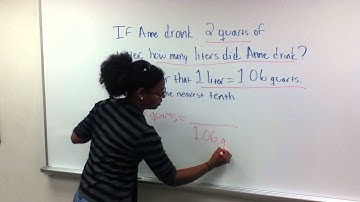 If Anne drank 2 quarts of
how many liters did Anne drink?
that 1 liter = 1.06 quarts.
nearest tenth
quarts =
1.06 q